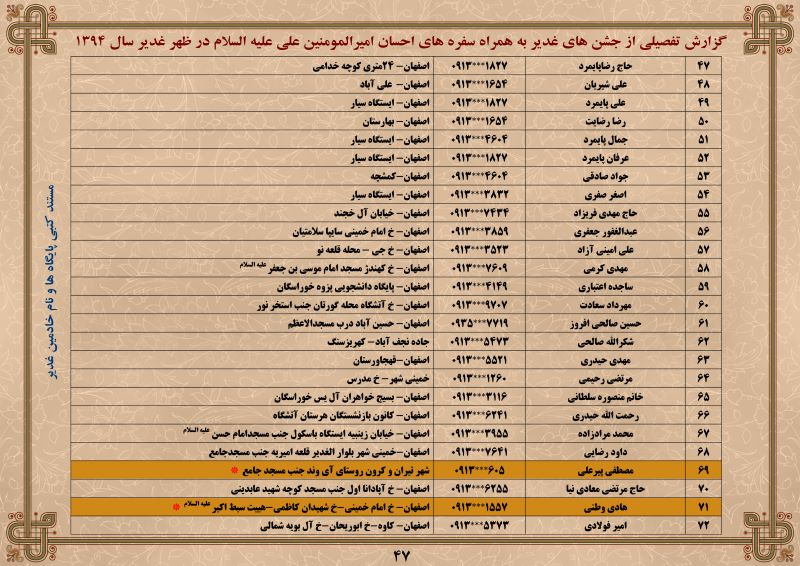 گزارش تفصیلی از جشن های غدیر به همراه سفره های احسان امیرالمومنین علی علیه السلام در ظهر غدیر سال ۱۳۹۴
۴۷ حاج رضاپایمرد ۰۹۱۳***۱۸۲۷ اصفهان- ۲۴متری کوچه خدامی
۴۸ علی شیریان ۰۹۱۳***۱۶۵۴ اصفهان- علی آباد
۴۹ علی پایمرد ۰۹۱۳***۱۸۲۷ اصفهان- ایستگاه سیار
۵۰ رضا رضایت ۰۹۱۳***۱۶۵۴ اصفهان- بهارستان
۵۱ جمال پایمرد ۰۹۱۳***۴۶۰۴ اصفهان- ایستگاه سیار
۵۲ عرفان پایمرد ۰۹۱۳***۱۸۲۷ اصفهان- ایستگاه سیار
۵۳ جواد صادقی ۰۹۱۳***۴۶۰۴ اصفهان-کمشچه
۵۴ اصغر صفری ۰۹۱۳***۳۸۳۲ اصفهان- ایستگاه سیار
۵۵ حاج مهدی فریزاد ۰۹۱۳***۷۴۳۴ اصفهان- خیابان آل خجند
۵۶ عبدالغفور جعفری ۰۹۱۳***۳۸۵۹ اصفهان- خ امام خمینی سایپا سلامتیان
۵۷ علی امینی آزاد ۰۹۱۳***۳۵۲۳ اصفهان- خ جی - محله قلعه نو
۵۸ مهدی کرمی ۰۹۱۳***۷۶۰۹ اصفهان- خ کهندژ مسجد امام موسی بن جعفر علیه السلام
۵۹ ساجده اعتباری ۰۹۱۳***۴۱۴۹ اصفهان- پایگاه دانشجویی پزوه خوراسگان
۶۰ مهرداد سعادت ۰۹۱۳***۹۷۰۷ اصفهان- خ آتشگاه محله گورتان جنب استخر نور
۶۱ حسین صالحی افروز ۰۹۳۵***۷۷۱۹ اصفهان- حسین آباد درب مسجدالاعظم
۶۲ شکرالله صالحی ۰۹۱۳***۵۴۷۳ جاده نجف آباد- کهریزسنگ
۶۳ مهدی حیدری ۰۹۱۳***۵۵۲۱ اصفهان-قهجاورستان
۶۴ مرتضی رحیمی ۰۹۱۳***۱۲۶۰ خمینی شهر- خ مدرس
۶۵ خانم منصوره سلطانی ۰۹۱۳***۳۱۱۶ اصفهان- بسیج خواهران آل یس خوراسگان
۶۶ رحمت الله حیدری ۰۹۱۳***۶۲۴۱ اصفهان- کانون بازنشستگان هرستان آتشگاه
۶۷ محمد مرادزاده ۰۹۱۳***۳۹۵۵ اصفهان- خیابان زینبیه ایستگاه باسکول جنب مسجدامام حسن علیه السلام
۶۸ داود رضایی ۰۹۱۳***۷۶۴۱ اصفهان-خمینی شهر بلوار الغدیر قلعه امیریه جنب مسجدجامع
۶۹ مصطفی پیرعلی ۰۹۱۳***۶۰۵ شهر تیران و کرون روستای آی وند جنب مسجد جامع *
۷۰ حاج مرتضی معادی نیا ۰۹۱۳***۶۲۵۵ اصفهان- خ آپادانا اول جنب مسجد کوچه شهید عابدینی
۷۱ هادی وطنی ۰۹۱۳***۱۵۵۷ اصفهان- خ امام خمینی-خ شهیدان کاظمی-هییت سبط اکبر علیه السلام *
۷۲ امیر فولادی ۰۹۱۳***۵۳۷۳ اصفهان- کاوه-خ ابوریحان-خ آل بویه شمالی
مستند کتبی پایگاه ها و نام خادمین غدیر
۴۷